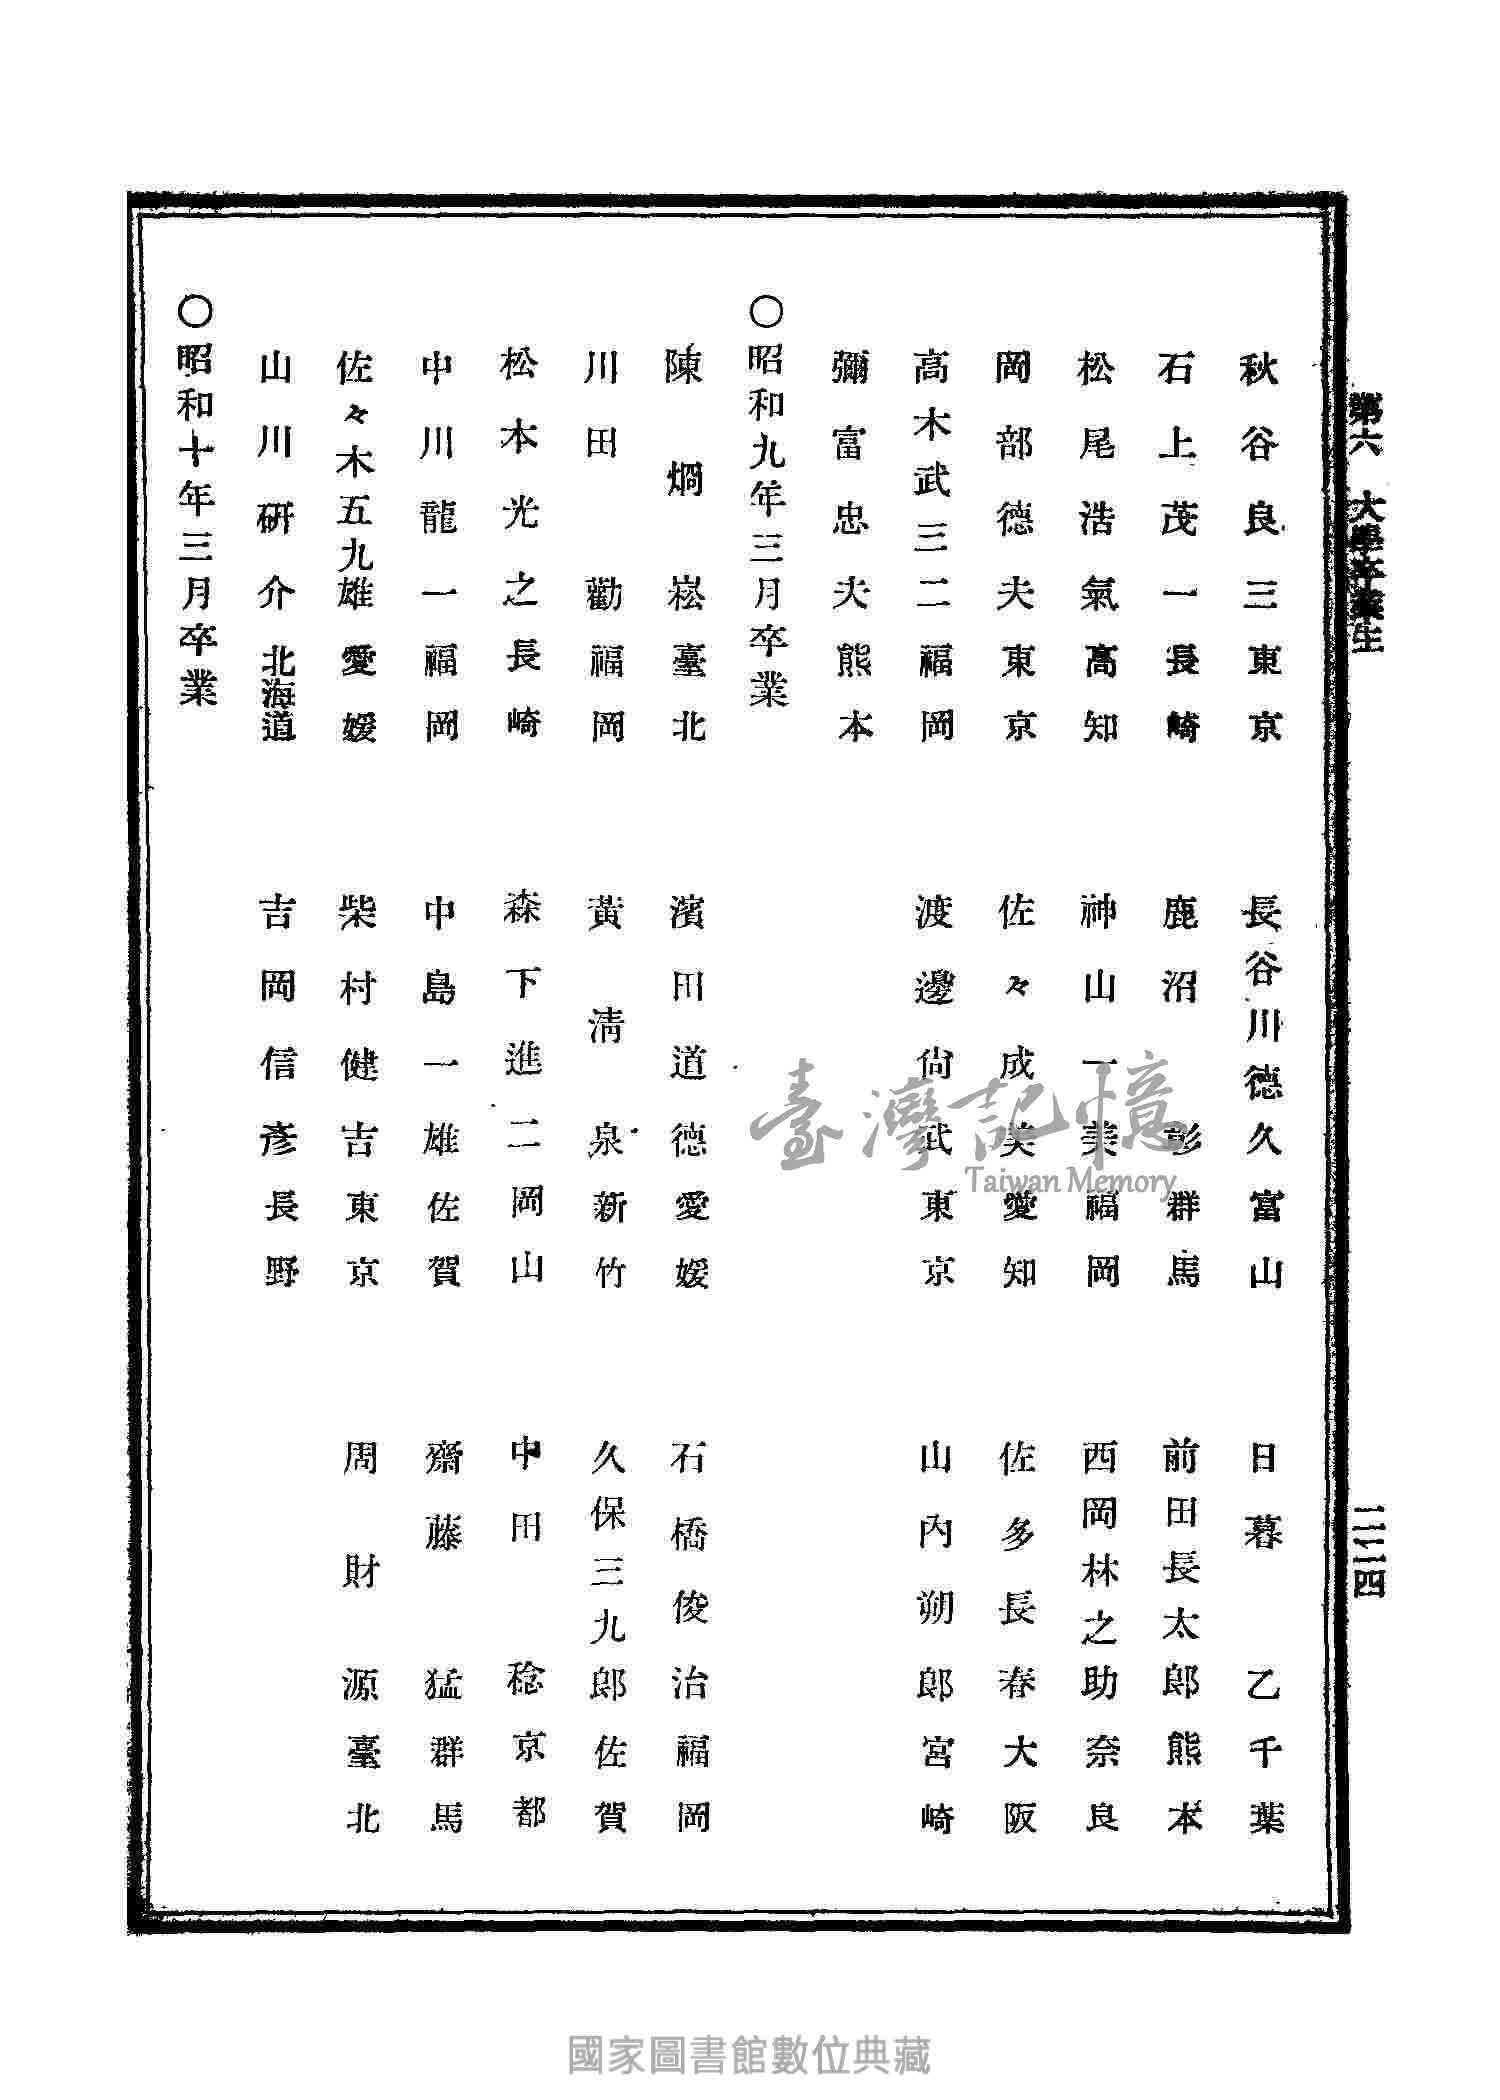 第六 大學卒業生
二二四
秋谷良三 東京
長谷川德久 富山
日暮乙 千葉
石上茂一 長崎
鹿沼彰 群馬
前田長太郎 熊本
松尾浩氣 高知
神山一美 福岡
西岡林之助 奈良
岡部德夫 東京
佐々成美 愛知
佐多長春 大阪
高木武三二 福岡
渡邊尙武 東京
山內朔郎 宮崎
彌富忠夫 熊本
〇昭和九年三月卒業
陳烱崧 臺北
濱田道德 愛媛
石橋俊治 福岡
川田勸 福岡
黃淸泉 新竹
久保三九郎 佐賀
松本光之 長崎
森下進二 岡山
中田稔 京都
中川龍一 福岡
中島一雄 佐賀
齋藤猛 群馬
佐々木五九雄 愛媛
柴村健吉 東京
周財源 臺北
山川硏介 北海道
吉岡信彥 長野
〇昭和十年三月卒業
臺灣記憶
Taiwan Memory
國家圖書館數位典藏